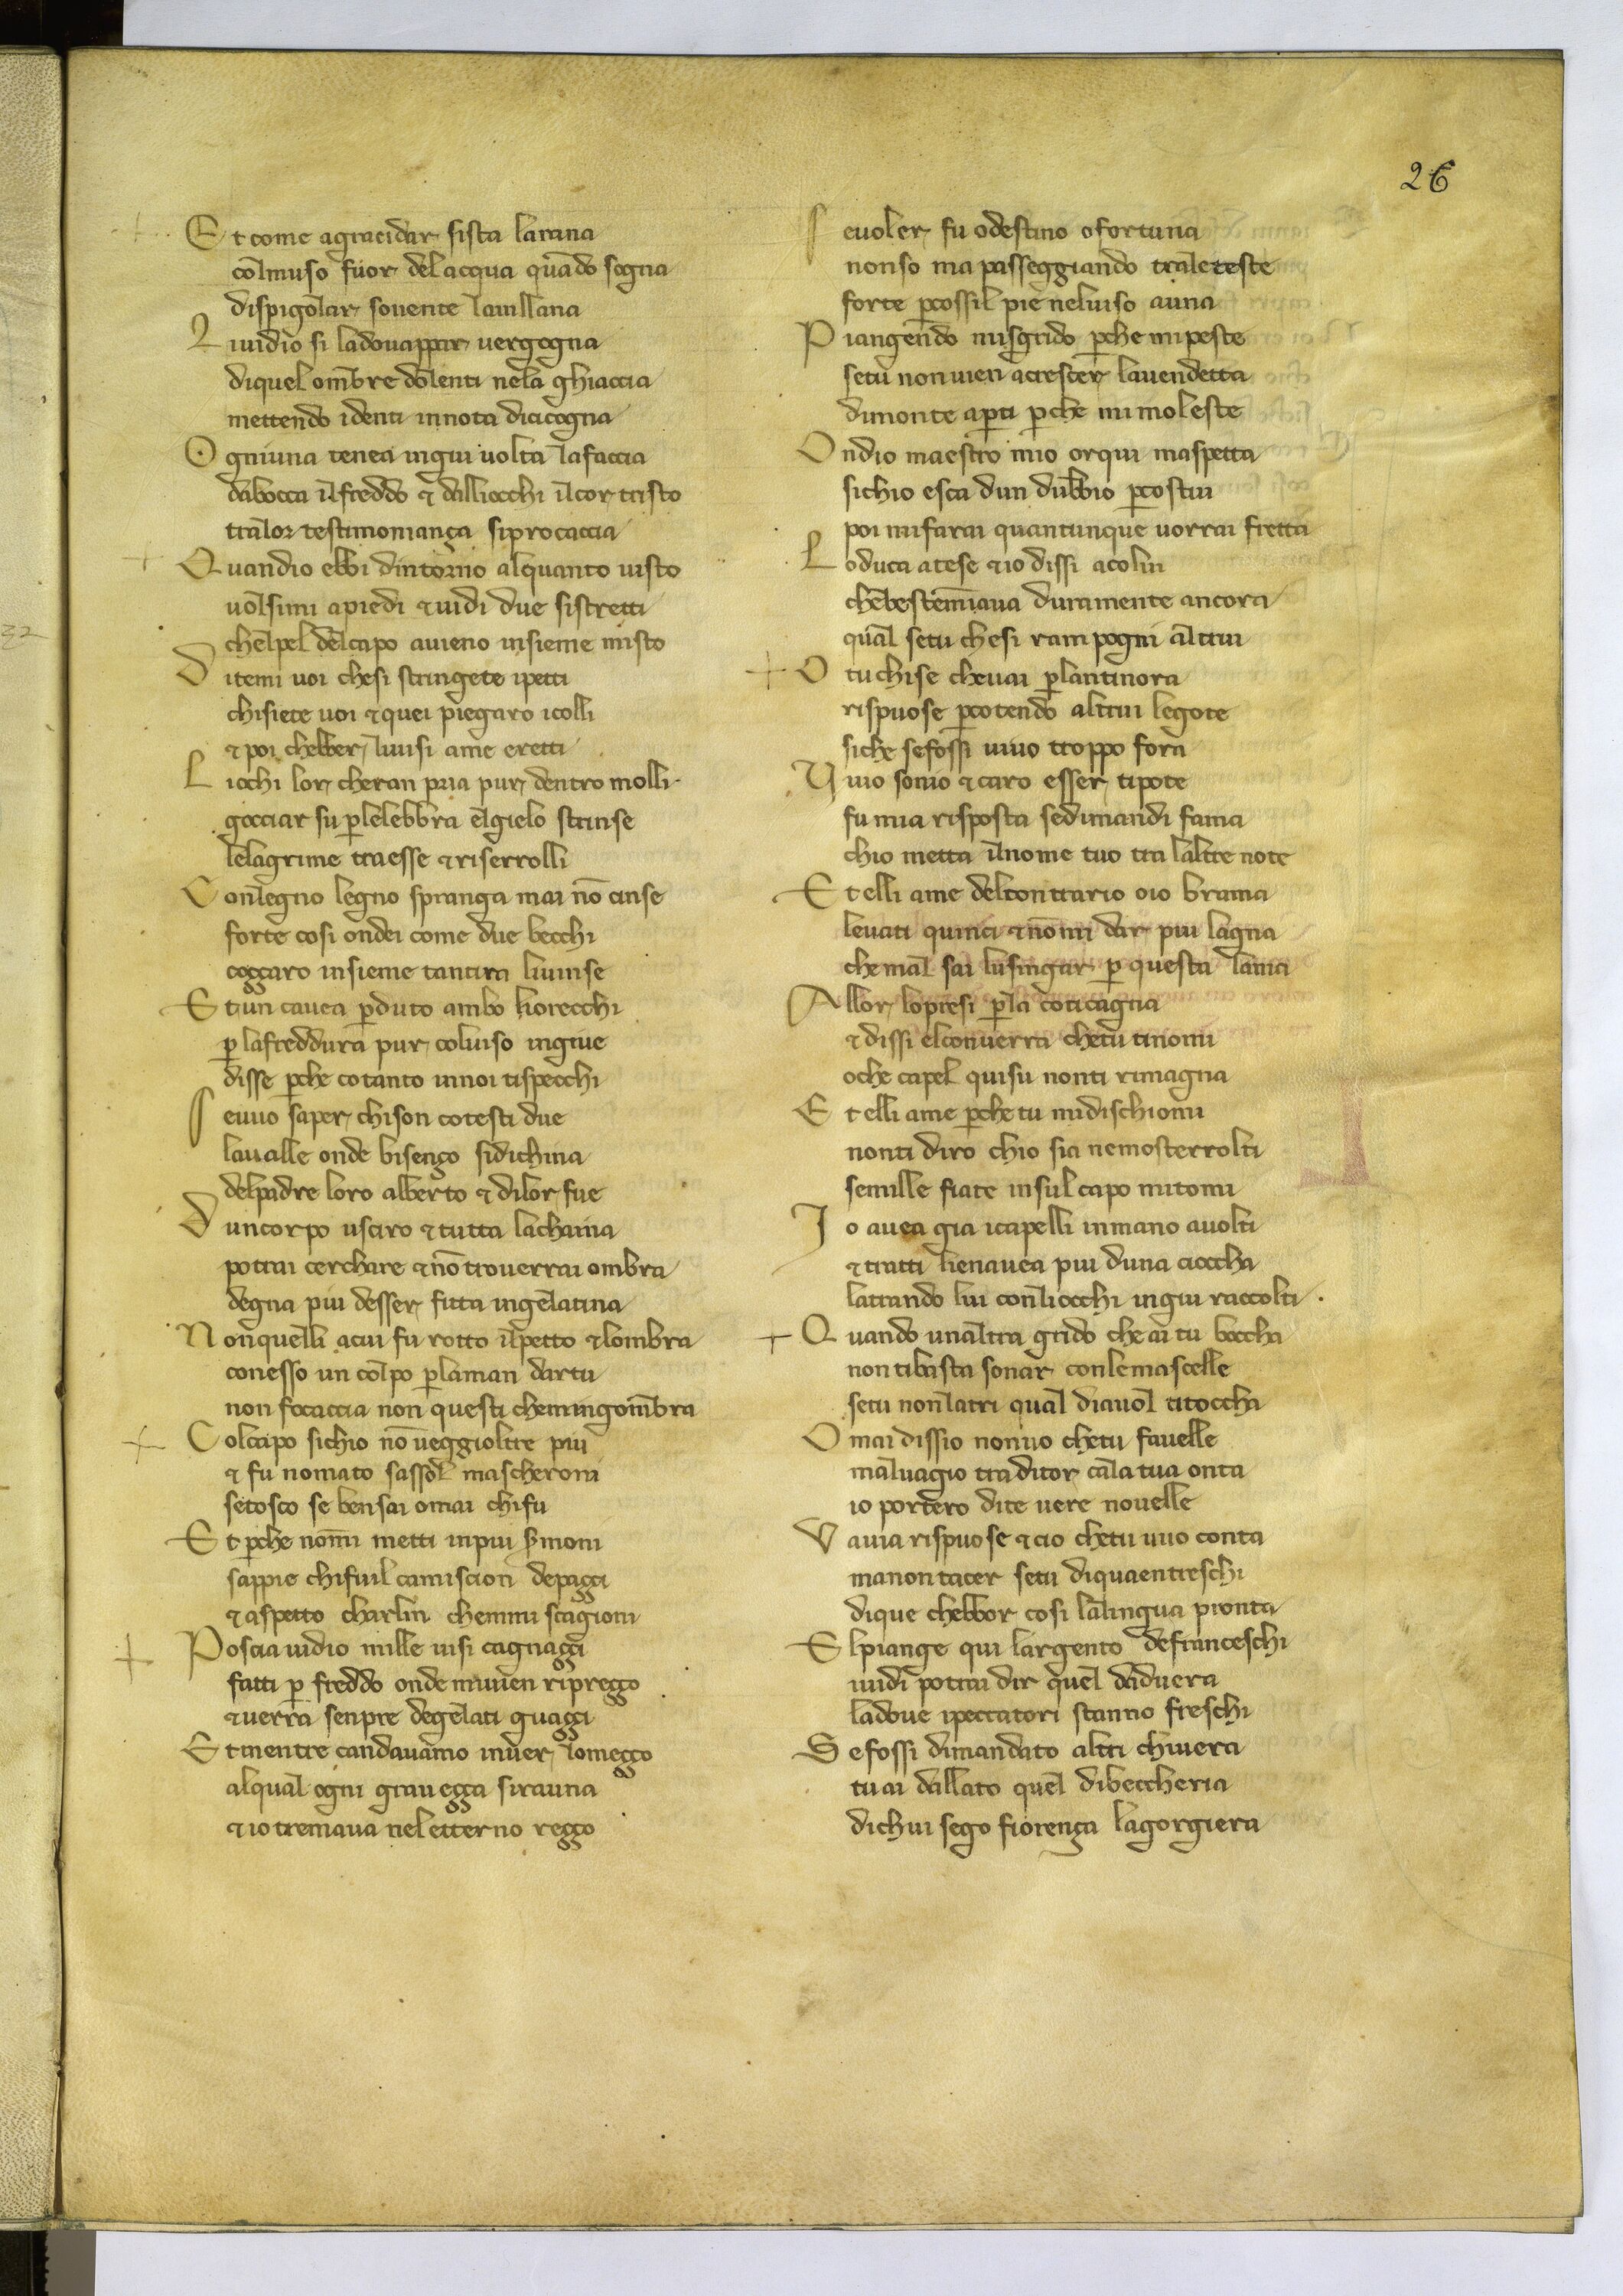 26
Et come agracidar sista larana
colmuso fuor del acqua quādo sogna
dispigolar sovente lauillana
Liuidio si ladouappar uergogna
diquel ombre dolenti nela ghiaccia
mettendo identi innota dicicogna
Ogniuna tenea ingiu uolta lafaccia
dabocca ilfreddo & dalliocchi ilcor tristo
tralor testimoniança siprocaccia
Quandio ebbi dintorno alquanto uisto
uolsimi apiedi & uidi due sistretti
chelpel delcapo auieno insieme misto
Ditemi uoi chesi stringete ipetti
chisiete uoi & quei piegaro icolli
& poi chebber liuisi ame eretti
Liochi lor cheran pria pur dentro molli
gocciar su p̱lelebbra elgielo strinse
lelagrime traesse & riserrolli
Conlegno legno spranga mai nō cinse
forte cosi ondei come due becchi
coççaro insieme tantira liuinse
Et un cauea p̱duto ambo liorecchi
p̱ lafreddura pur coluiso ingiue
disse p̱che cotanto innoi tispecchi
Seuuo saper chison cotesti due
laualle onde bisenço sidichina
delpadre loro alberto & dilor fue
Duncorpo usciro & tutta lachaina
potrai cerchare & nō trouerrai ombra
degna piu desser fitta ingelatina
Nonquelli acui fu rotto ilpetto & lombra
conesso un colpo p̱laman dartu
non focaccia non questi chemingombra
Colcapo sichio nō ueggioltre piu
& fu nomato sassol mascheroni
setosco se bensai omai chifu
Et p̱che nonmi metti inpiu s̱moni
sappie chifuil camiscion depaççi
& aspetto charlin chemmi scagioni
Poscia uidio mille uisi cagnaççi
fatti p̱ freddo onde miuien riprezzo
& uerra senpre degelati guaççi
Et mentre candauamo inuer lomeçço
alqual ogni graueçça sirauna
& io tremaua nel etterno reçço
Seuoler fu odestino ofortuna
nonso ma passeggiando traleteste
forte p̱cossil pie neluiso auna
Piangendo misgrido p̱che mipeste
setu nonuieni acrescer lauendetta
dimonte ap̱ti p̱che mi moleste
Ondio maestro mio orqui maspetta
sichio esca dun dubbio p̱costui
poi mifarai quantunque uorrai fretta
Loduca atese & io dissi acolui
chebestemiaua duramente ancora
qual setu chesi rampogni altrui
O tuchise cheuai p̱lantinora
rispuose p̱cotendo altrui legote
siche sefossi uiuo troppo fora
Viuo sonio & caro esser tipote
fu mia risposta sedimandi fama
chio metta ilnome tuo tra laltre note
Et elli ame delcontrario oio brama
leuati quinci & nōmi dar piu lagna
chemal sai lusingar p̱ questa lama
Allor lopresi p̱la coticagna
& dissi elconuerra chetu tinomi
oche capel quisu nonti rimagna
Et elli ame p̱che tu midischiomi
nonti diro chio sia nemosterrolti
semille fiate insul capo mitomi
Io auea gia icapelli inmano auolti
& tratti lienauea piu duna ciocha
latrando lui conliocchi ingiu raccolti
Quando unaltra grido che ai tu boccha
nontibasta sonar conlemascelle
setu nonlatri qual diauol titoccha
Omai dissio nonuo chetu fauelle
maluagio traditor cala tua onta
io portero dite uere nouelle
Vauia rispuose & cio chetu uuo conta
manontacer setu diquaentreschi
dique chebbor cosi lalingua pronta
Elpiange qui largento defranceschi
iuidi potrai dir quel daduera
ladoue ipeccatori stanno freschi
Sefossi dimandato altri chiuera
tuai dallato quel dibeccheria
dichui sego fiorença lagorgiera